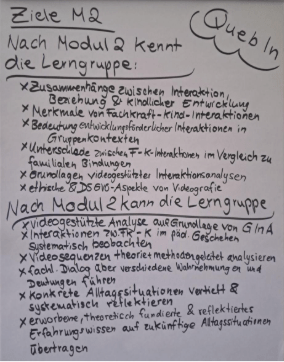 Ziele M2
QuebIn
Nach Modul 2 kennt
die Lerngruppe:
x Zusammenhänge zwischen Interaktion,
Beziehung & kindlicher Entwicklung
x Merkmale von Fachkraft-Kind-Interaktionen
x Bedeutung entwicklungsförderlicher Interaktionen in
Gruppenkontexten
x Unterschiede zwischen F-K-Interaktionen im Vergleich zu
familialen Bindungen
x Grundlagen videogestützter Interaktionsanalysen
x ethische & DSGVO-Aspekte von Videografie
Nach Modul 2 kann die Lerngruppe
x videogestützte Analyse auf Grundlage von GInA
x Interaktionen zw. FK-K im päd. Geschehen
systematisch beobachten
x Videosequenzen theorie+methodengeleitet analysieren
x fachl. Dialog über verschiedene Wahrnehmungen und
Deutungen führen
x konkrete Alltagssituationen vertieft &
systematisch reflektieren
x erworbene, theoretisch fundierte & reflektiertes
Erfahrungswissen auf zukünftige Alltagssituationen
übertragen